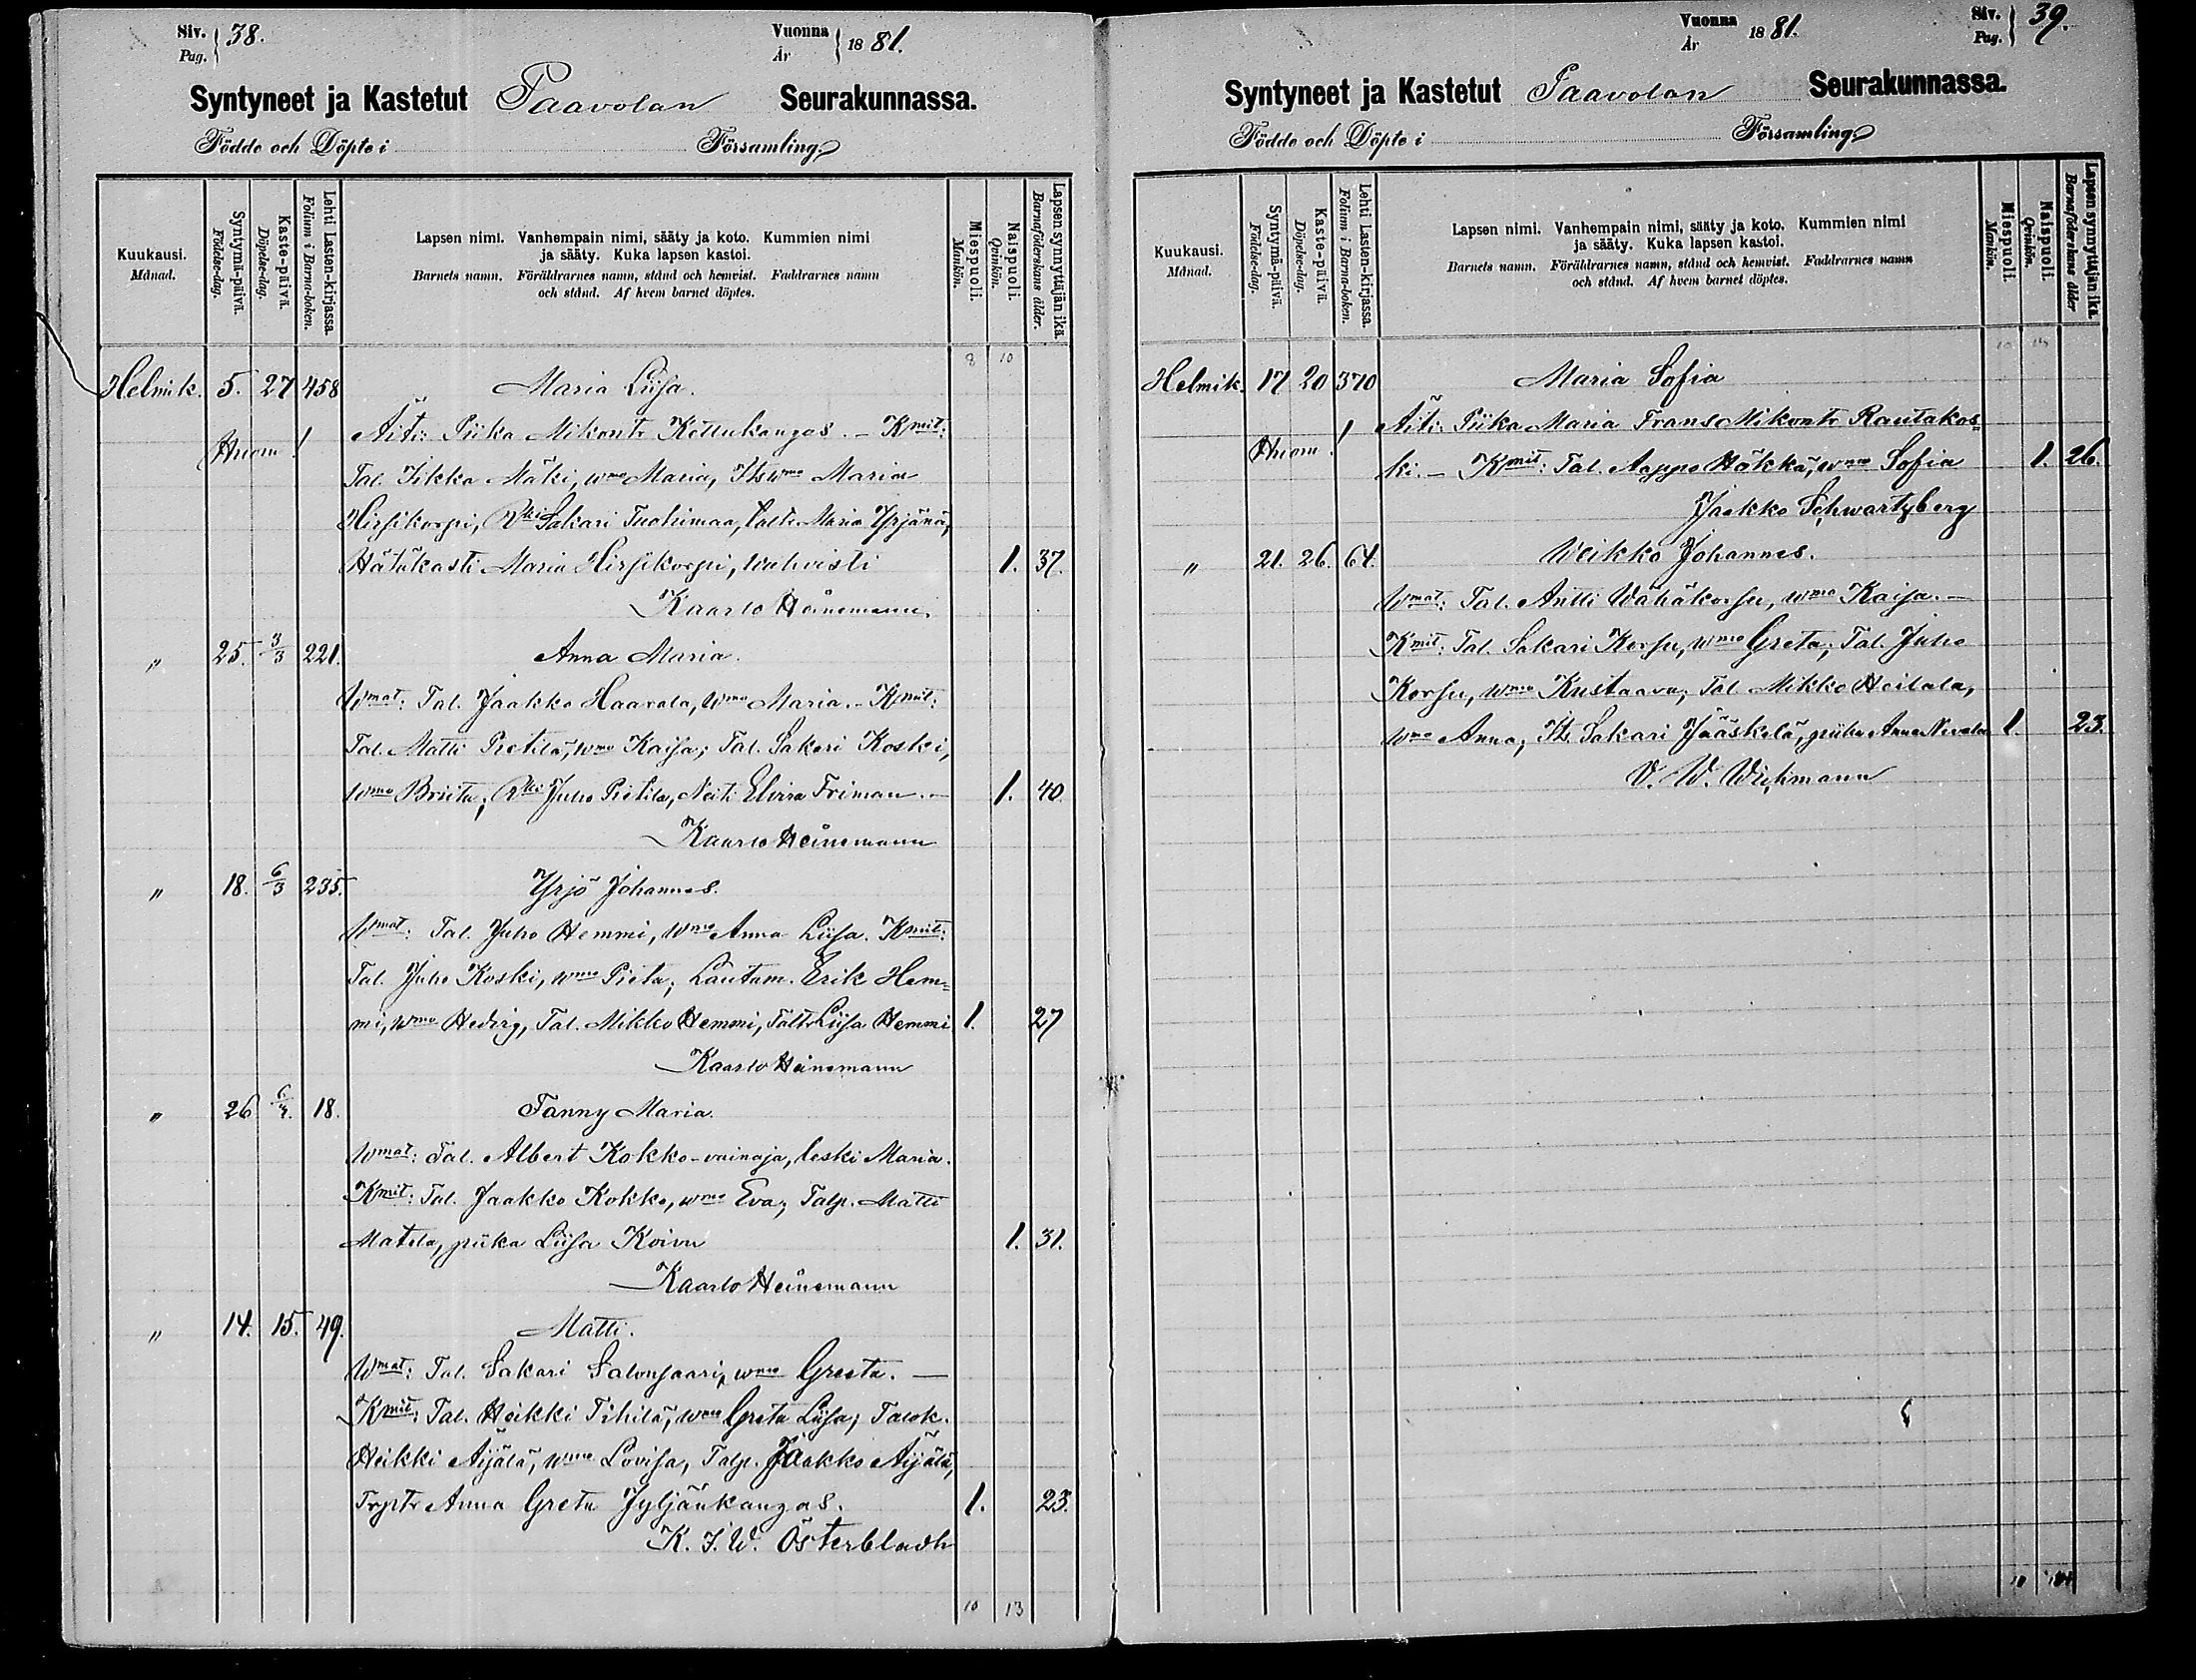 Siv. Pag. 38.
Vuonna År 1881.
Syntyneet ja Kastetut Paavolan Seurakunnassa.
Födde och Döpte i Församling
Kuukausi. Månad.
Syntymä-päivä. Födelse-dag.
Kaste-päivä. Döpelse-dag.
Lehti Lasten-kirjassa. Folium i Barna-boken.
Lapsen nimi. Vanhempain nimi, sääty ja koto. Kummien nimi
ja sääty. Kuka lapsen kastoi.
Barnets namn. Föräldrarnes namn, stånd och hemvist. Faddrarnes namn
och stånd. Af hvem barnet döptes.
Miespuoli. Mankön.
Naispuoli. Qvinkön.
Lapsen synnyttäjän ikä. Barnaföderskans ålder.
8 10
Helmik. 5. 27 458 Maria Liisa.
Huom! Äiti: Piika Mikontr Kettukangas. – Kmit:
Tal. Iikka Mäki, wmo Maria, Itswmo Maria
Hirsikorpi, Rki Sakari Tuohimaa, Taltr Maria Yrjänä,
Hätäkasti Maria Hirsikorpi, wahvisti 1. 37.
Kaarlo Heinemann.
„ 25. 3/3 221. Anna Maria.
Wmat: Tal. Jaakko Haarala, Wmo Maria. – Kmit:
Tal. Matti Pietilä, wmo Kaisa; Tal. Sakari Koski,
wmo Briita; Rki Juho Pietilä, Neiti Elvira Friman. – 1. 40.
Kaarlo Heinemann
„ 18. 6/3 235. Yrjö Johannes.
Wmat: Tal. Juho Hemmi, Wmo Anna Liisa. Kmit:
Tal. Juho Koski, wmo Pieta; Lautam. Erik Hem=
mi, wmo Hedvig, Tal. Mikko Hemmi, Taltr Liisa Hemmi 1. 27
Kaarlo Heinemann
„ 26 18. Fanny Maria.
Wmat: Tal. Albert Kokko-vainaja, leski Maria.
Kmit: Tal. Jaakko Kokko, wmo Eva; Talp. Matti
Matila, piika Liisa Koivu 1. 31.
Kaarlo Heinemann
„ 14. 15. 49. Matti.
Wmat: Tal. Sakari Salonsaari, wmo Greeta. —
Kmit: Tal. Heikki Tihilä, wmo Greta Liisa; Talok.
Heikki Äijälä, wmo Lovisa, Talp. Jaakko Äijälä,
Trptr Anna Greta Jyljänkangas. 1. 23.
K. J. W. Österbladh
10 13
Vuonna År 1881.
Siv. Pag. 39.
Syntyneet ja Kastetut Paavolan Seurakunnassa.
Födde och Döpte i Församling
Kuukausi. Månad.
Syntymä-päivä. Födelse-dag.
Kaste-päivä. Döpelse-dag.
Lehti Lasten-kirjassa. Folium i Barna-boken.
Lapsen nimi. Vanhempain nimi, sääty ja koto. Kummien nimi
ja sääty. Kuka lapsen kastoi.
Barnets namn. Föräldrarnes namn, stånd och hemvist. Faddrarnes namn
och stånd. Af hvem barnet döptes.
Miespuoli. Mankön.
Naispuoli. Qvinkön.
Lapsen synnyttäjän ikä. Barnaföderskans ålder
Helmik. 17 20 370 Maria Sofia
Huom! Äiti: Piika Maria Frans Mikontr Rautakos=
ki. – Kmit: Tal. Aappo Häkkä, wmo Sofia 1. 26.
Jaakko Schwartzberg
„ 21. 26. 64. Weikko Johannes.
Wmat: Tal. Antti Wähäkorsu, wmo Kaisa. —
Kmit: Tal. Sakari Korsu, wmo Greta; Tal. Juho
Korsu, wmo Kustaava; Tal. Mikko Heilala,
wmo Anna; Its. Sakari Jääskelä, piika Anna Nevala 1. 23.
V. W. Wichmann